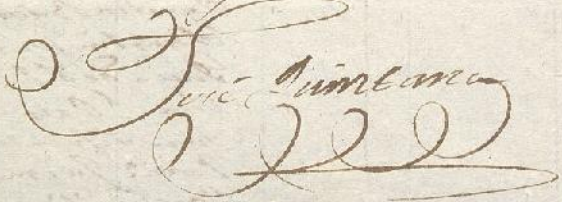 José Quintana